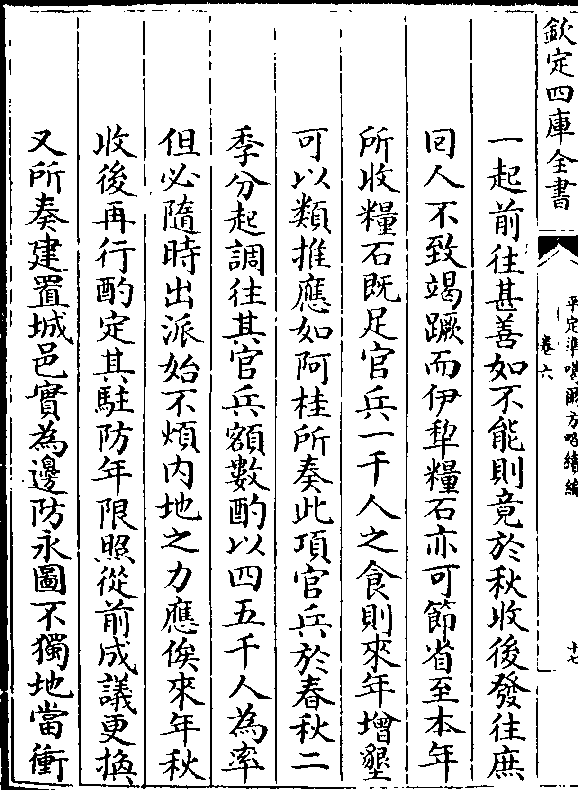 欽定四庫全書
平定準噶爾方略續編
卷六
十七
一起前往甚善如不能則竟於秋收後發往庶
回人不致竭蹶而伊犂糧石亦可節省至本年
所收糧石既足官兵一千人之食則來年增墾
可以類推應如阿桂所奏此項官兵於春秋二
季分起調往其官兵額數酌以四五千人為率
但必隨時出派始不煩内地之力應俟來年秋
收後再行酌定其駐防年限照從前成議更換
又所奏建置城邑實為邊防永圖不獨地當衝